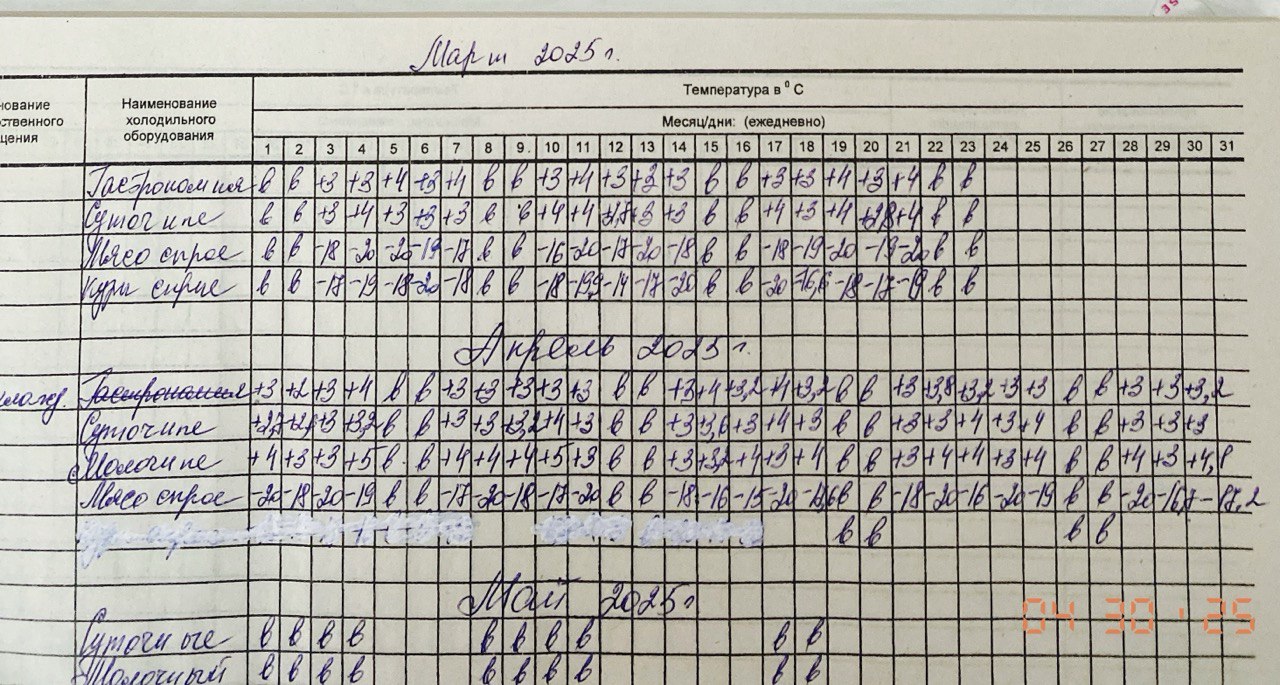 Март 2025 г.
нование
ственного
щения
Наименование
холодильного
оборудования
Температура в ⁰ С
Месяц/дни: (ежедневно)
1 2 3 4 5 6 7 8 9. 10 11 12 13 14 15 16 17 18 19 20 21 22 23 24 25 26 27 28 29 30 31
Гастрономия в в +3 +3 +4 +3 +4 в в +3 +4 +3 +3 +3 в в +3 +3 +4 +3 +4 в в
Суточные в в +3 +4 +3 +3 +3 в в +4 +4 +3 +3 в в +4 +3 +4 +2,8 +4 в в
Мясо сырое в в -18 -20 -20 -19 -17 в в -16 -20 -17 -20 -18 в в -18 -19 -20 -19 -20 в в
Куры сырые в в -17 -19 -18 -20 -18 в в -18 -19,9 -17 -20 в в -20 -16,6 -18 -17 -19 в в
Апрель 2025 г.
Гастрономия +3 +2 +3 +4 в в +3 +3 +3 +3 +3 в в +3 +4 +3,2 +4 +3,2 в в +3 +3,8 +3,2 +3 +3 в в +3 +3 +3,2
Суточные +3 +3,2 в в +3 +3 +3,2 +4 +3 в в +3 +3,6 +3 +4 +3 в в +3 +3 +4 +3 +4 в в +3 +3 +3
Молочные +4 +3 +3 +5 в в +4 +4 +4 +5 +3 в в +3 +3,2 +4 +3 +4 в в +3 +4 +4 +3 +4 в в +4 +3 +4,8
Мясо сырое -20 -18 -20 -19 в в -17 -20 -18 -17 -20 в в -18 -16 -15 -20 в в -18 -20 -16 -20 -19 в в -20 -16,7 -17,2
в в в в
Май 2025 г
Суточные в в в в в в в в в в
Молочный в в в в в в в в в в
04 30 '25